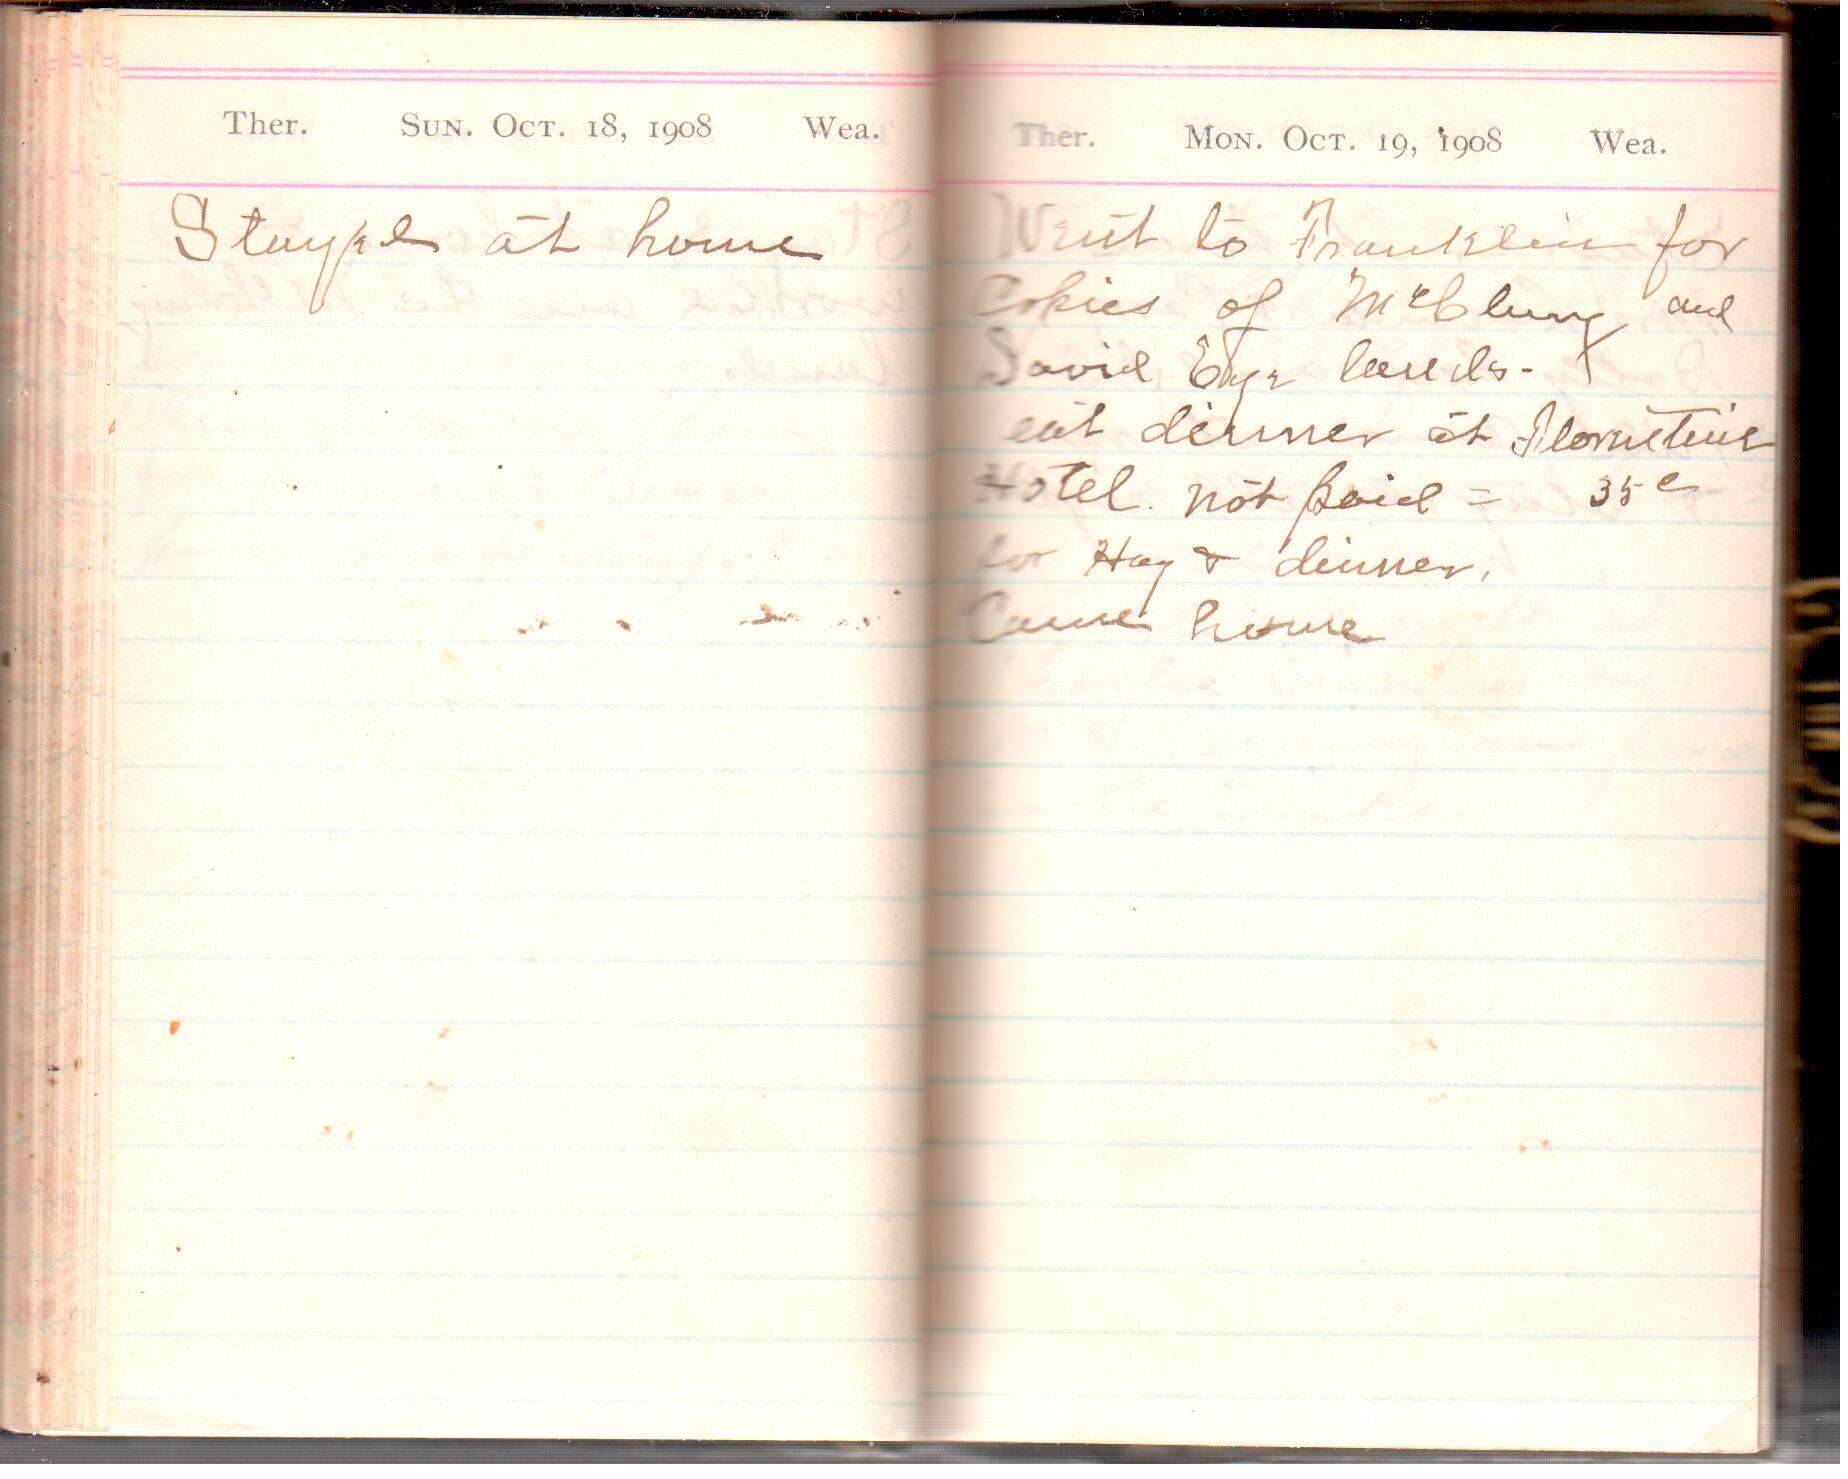 Ther. Sun. Oct. 18, 1908 Wea.
Stayed at home
Ther. Mon. Oct. 19, 1908 Wea.
Went to Franklin for
Copies of McClung and
David Eye lands -
eat dinner at Florintine
Hotel. not paid = 35c
for Hay & dinner.
Came home